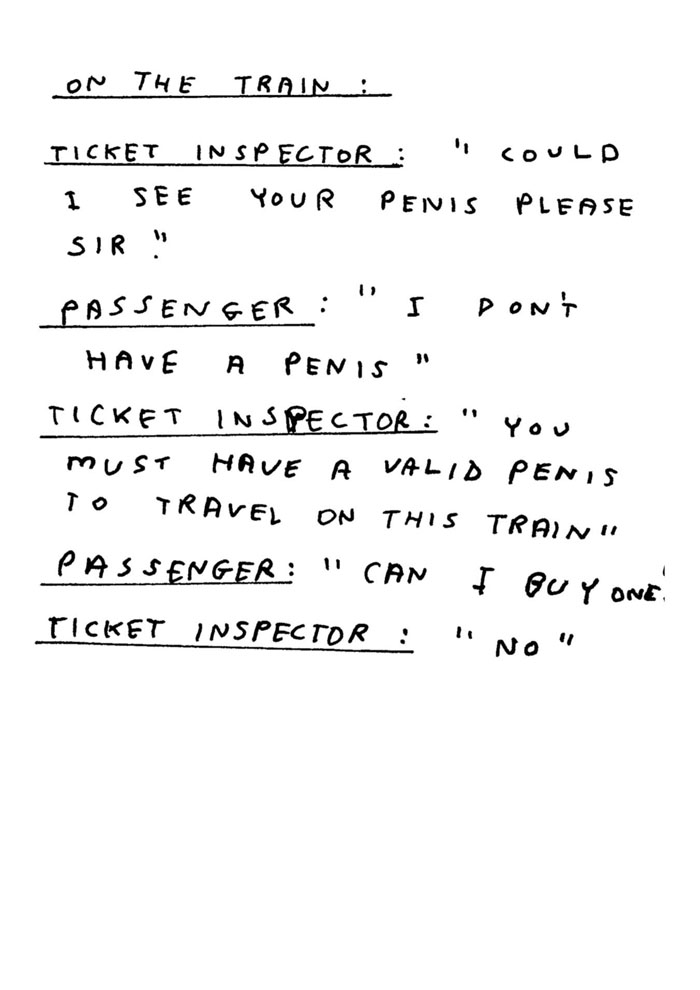 ON THE TRAIN :
TICKET INSPECTOR : " COULD
I SEE YOUR PENIS PLEASE
SIR ."
PASSENGER : " I DON'T
HAVE A PENIS "
TICKET INSPECTOR : " YOU
MUST HAVE A VALID PENIS
TO TRAVEL ON THIS TRAIN "
PASSENGER : " CAN I BUY ONE
TICKET INSPECTOR : " NO "